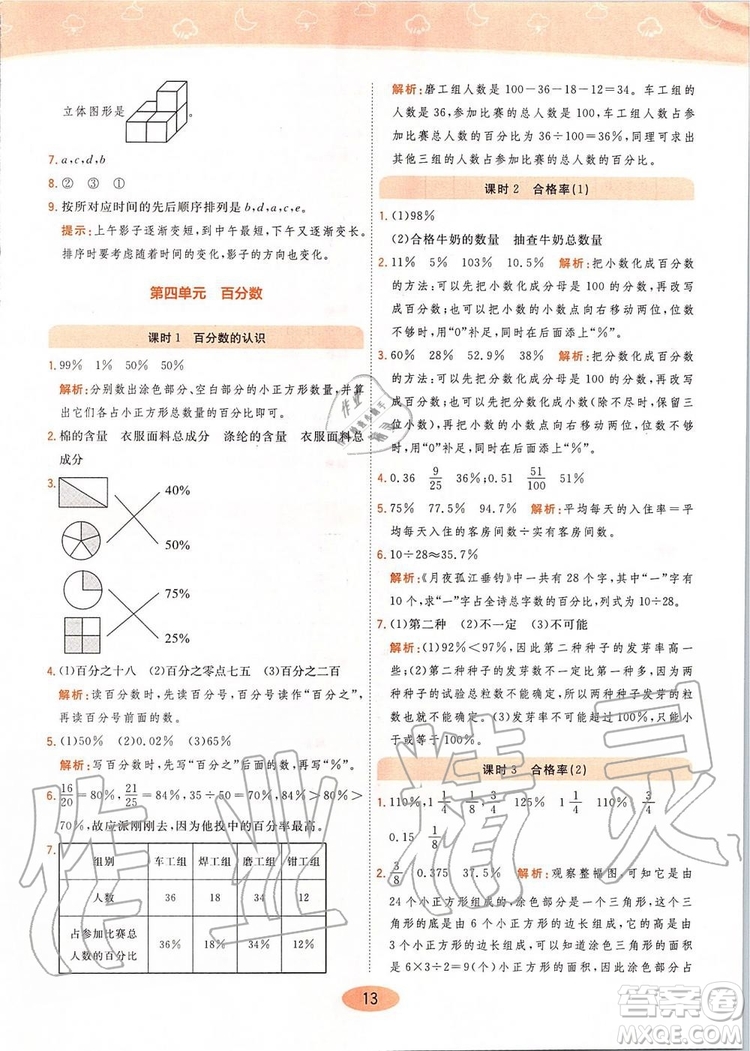 立体图形是。
7. a,c,d,b
8. ② ③ ①
9. 按所对应时间的先后顺序排列是 b,d,a,c,e。
提示:上午影子逐渐变短,到中午最短,下午影子逐渐变长。
排序时要根据时间的变化,影子的方向也变化。
第四单元 百分数
课时1 百分数的认识
1. 99% 1% 50% 50%
解析:分别数出涂色部分、空白部分的小正方形数量,并算
出它们各占小正方形总数量的百分比即可。
2. 棉的含量 衣服面料总成分 涤纶的含量 衣服面料总
成分
3.
40%
50%
75%
25%
4. (1)百分之十八 (2)百分之零点七五 (3)百分之二百
解析:读百分数时,先读百分号,百分号读作“百分之”,
再读百分号前面的数。
5. (1)50% (2)0.02% (3)65%
解析:写百分数时,先写百分号前面的数,再写百分号。
6. 16/20=80%,21/25=84%,35÷50=70%,84%>80%>
70%,故应派刚刚去,因为他投中的百分率最高。
7.
组别 车工组 焊工组 磨工组 钳工组
人数 36 18 34 12
占参加比赛总人数的百分比 36% 18% 34% 12%
解析:磨工组人数是 100-36-18-12=34。车工组
的人数是 36,参加比赛的总人数是 100,车工组人数占
参加比赛总人数的百分比为 36÷100=36%,同理可求出
其他三组的人数占参加比赛总人数的百分比。
课时2 合格率(1)
1. (1)98%
(2)合格牛奶的数量 抽查牛奶总数量
2. 11% 5% 103% 10.5% 解析:把小数化成百分数
的方法:可以先把小数化成分母是 100 的分数,再改写
成百分数;也可以把小数的小数点向右移动两位,位数
不够时,用“0”补足,同时在后面添上“%”。
3. 60% 28% 52.9% 38% 解析:把分数化成百分数
的方法:可以先把分数化成分母是 100 的分数,再改写
成百分数;也可以先把分数化成小数(除不尽时,保
留三位小数),再把小数的小数点向右移动两位,位数不
够时,用“0”补足,同时在后面添上“%”。
4. 0.36 9/25 36%;0.51 51/100 51%
5. 75% 77.5% 94.7% 解析:平均每天的入住率=平
均每天入住的客房间数÷实有客房间数。
6. 10÷28≈35.7%
解析:《月夜孤江垂钓》中一共有 28 个字,其中“一”字有
10 个,求“一”字占全诗总字数的百分比,列式为 10÷28。
7. (1)第二种 (2)不一定 (3)不可能
解析:(1)92%<97%,因此第二种种子的发芽率高一
些;(2)如果第一种种子的发芽数比第二种种子的多,
种子的试验总粒数也就不能确定,因此第一种的发芽粒
数也不能确定;(3)发芽率不可能超过 100%。
课时3 合格率(2)
1. 110%,1 1/4,3/4 125% 1 1/4 110%
0.15 1/8
2. 3/8 0.375 37.5% 解析:观察整幅图,可知它是由
24 个小正方形组成的,涂色部分是一个三角形,这个三
角形的底是 6 个小正方形的边长,这个三角形的高是
3 个小正方形的边长,因此可以知道涂色三角形中有
6×3÷2=9(个)小正方形,因此涂色部分的小正方形占
13
作业精灵
答案圈
MXQE.COM